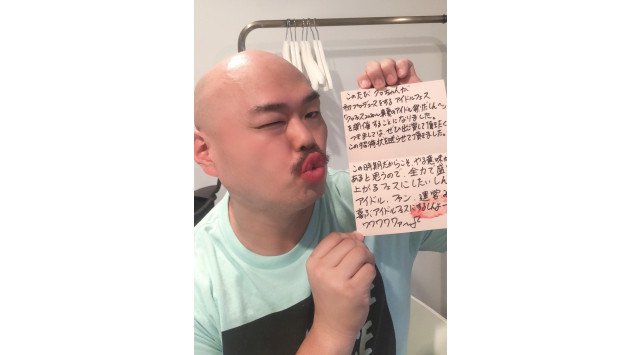 このたび、クロちゃんが
初プロデュースをするアイドルフェス
を開催することになりました。
つきましては、ぜひ出演して頂きたく
この招待状を送らせて頂きました。
この時期だからこそ、やる意味が
あると思うので、全力で盛り
上がるフェスにしたいしん
アイドル、ファン、運営み
喜ぶ、アイドルフェスにするしんよー
ワワワワァーッ